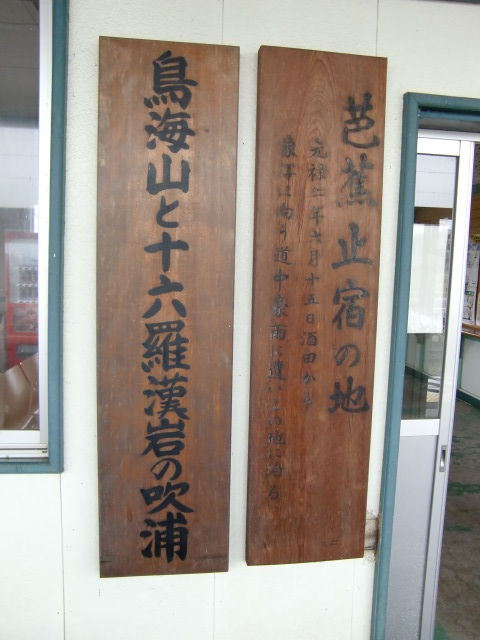 芭蕉止宿の地
元禄二年六月十五日酒田から
象潟に向う道中豪雨に遭いこの地に泊る
鳥海山と十六羅漢岩の吹浦